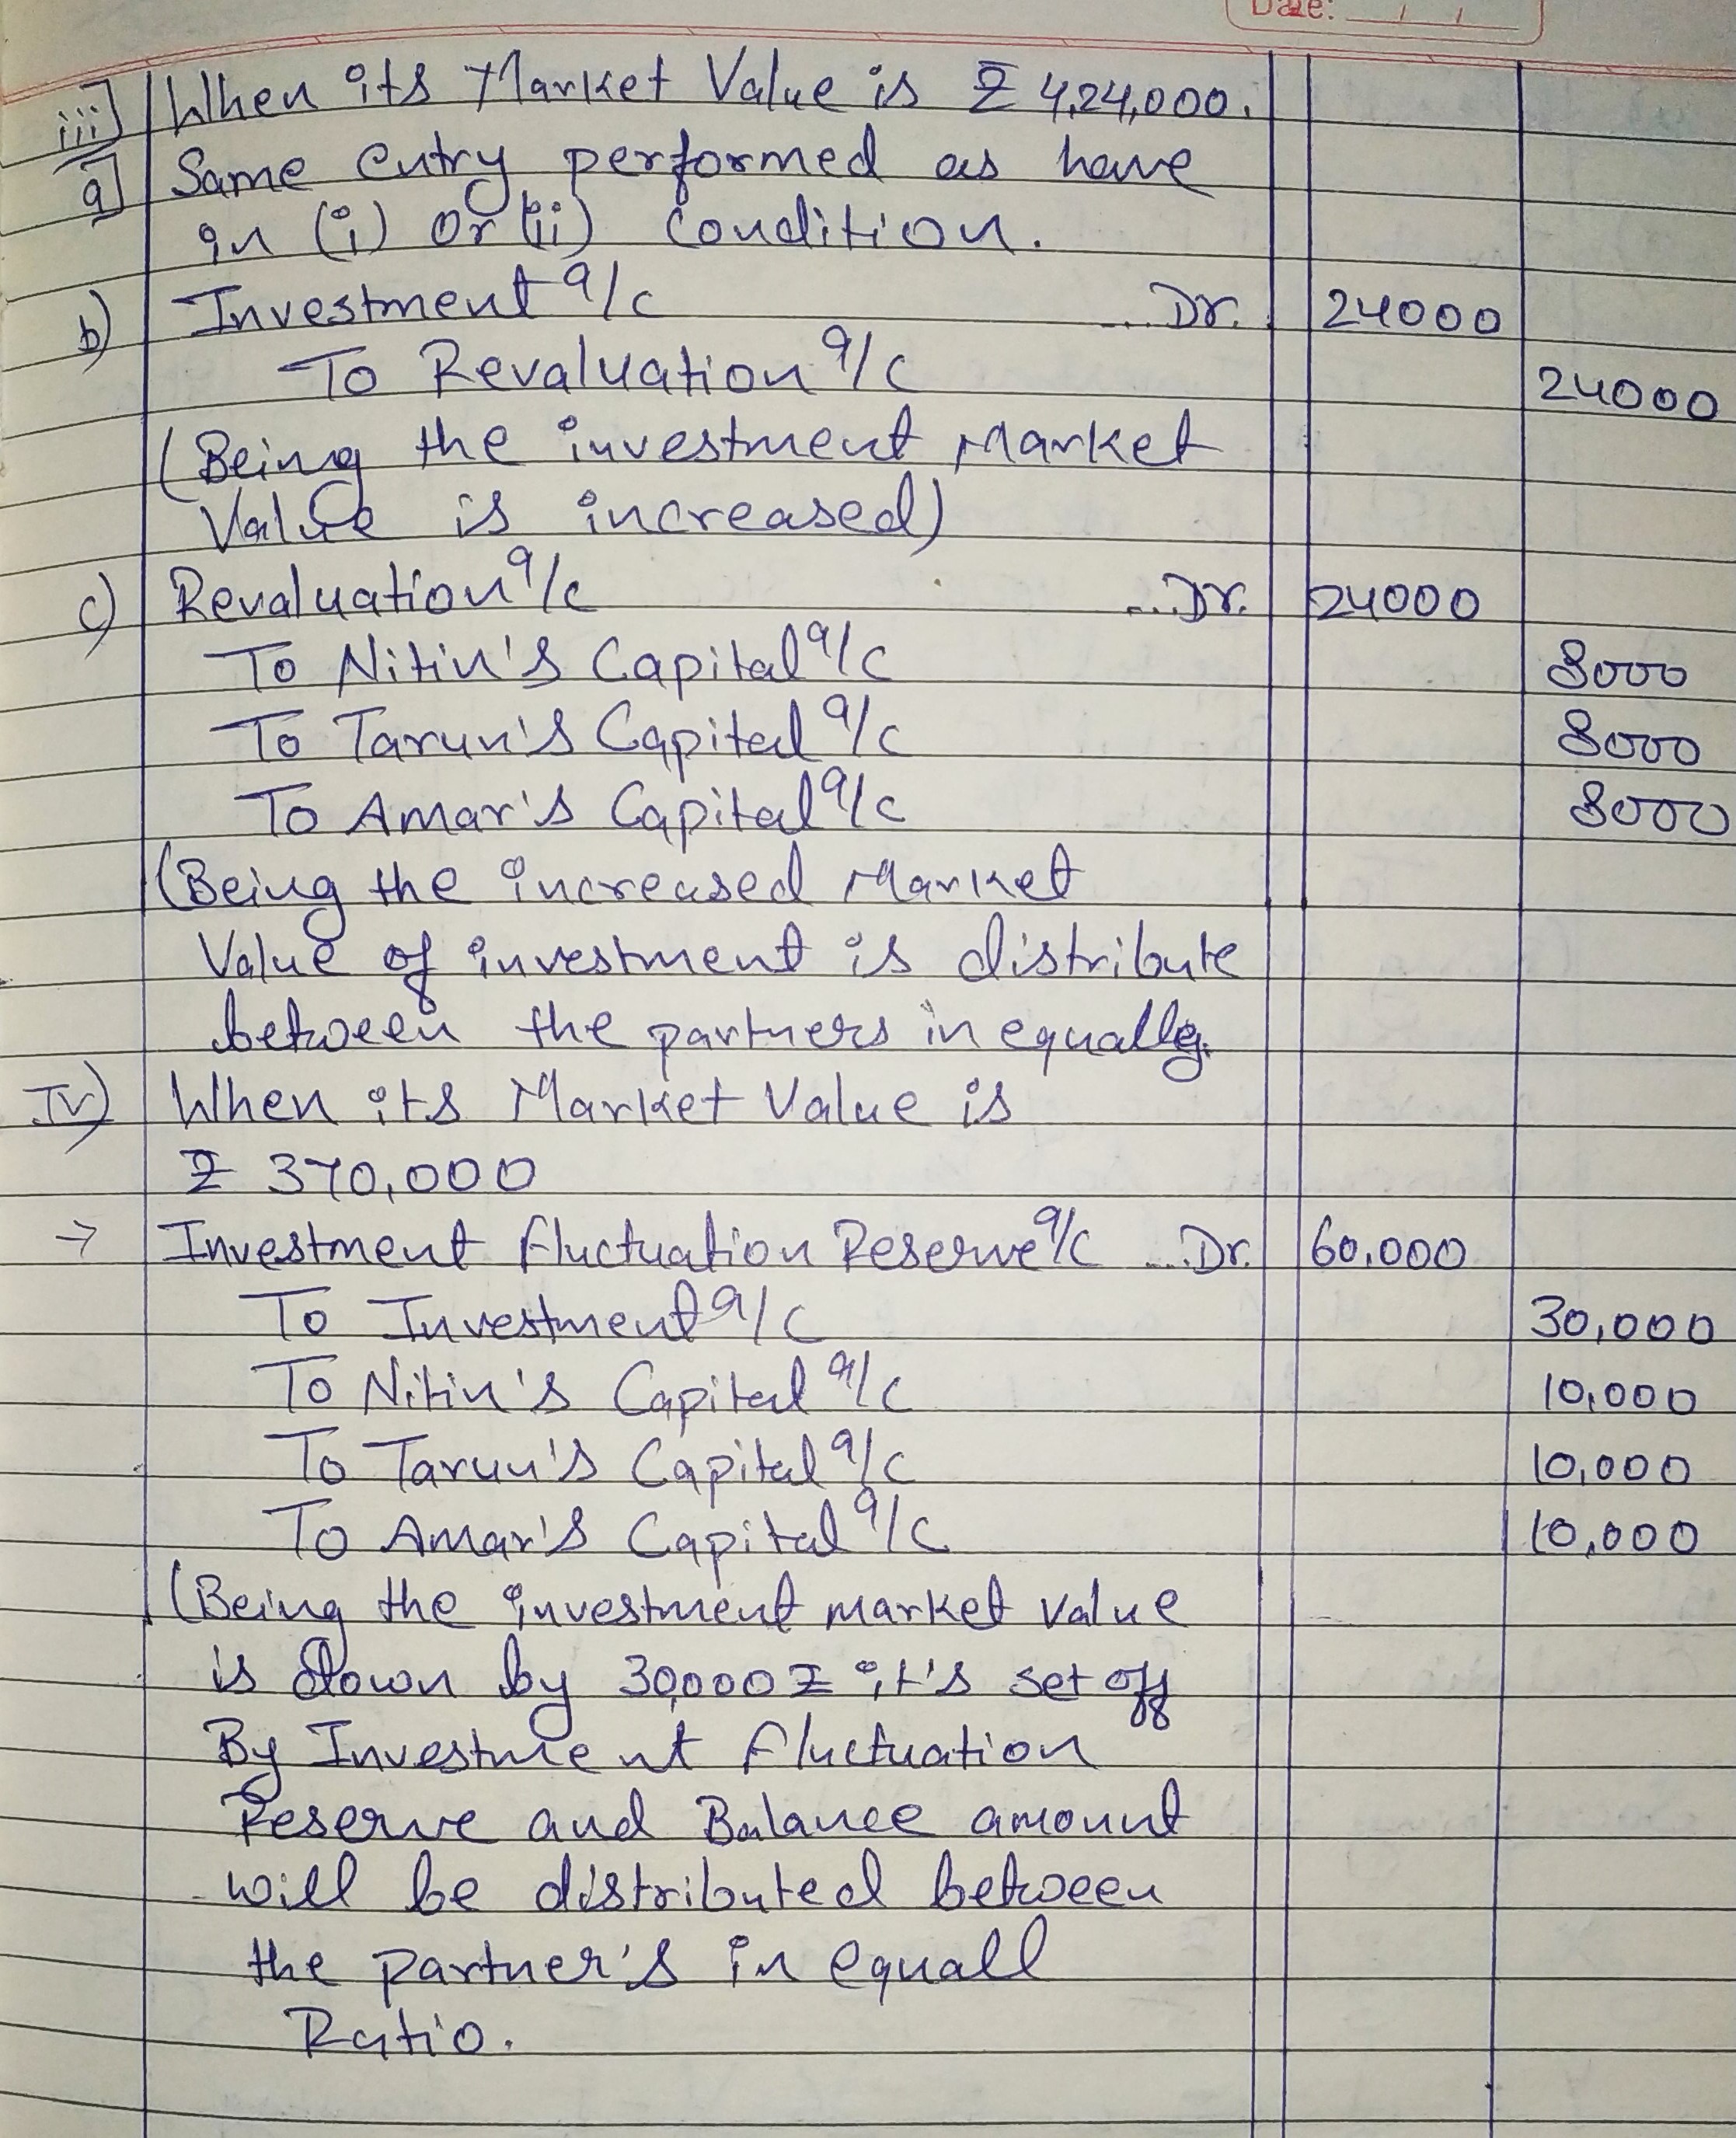 Date: / /
iii] When its Market Value is ₹ 4,24,000.
a] Same entry performed as have
in (i) or (ii) condition.
b) Investment a/c ...Dr. 24000
To Revaluation a/c 24000
(Being the investment Market
Value is increased)
c) Revaluation a/c ...Dr. 24000
To Nitin's Capital a/c 8000
To Tarun's Capital a/c 8000
To Amar's Capital a/c 8000
(Being the increased Market
Value of investment is distribute
between the partners in equally.
IV) When its Market Value is
₹ 370,000
→ Investment fluctuation Reserve a/c ...Dr. 60,000
To Investment a/c 30,000
To Nitin's Capital a/c 10,000
To Tarun's Capital a/c 10,000
To Amar's Capital a/c 10,000
(Being the investment market value
is down by 30,000 ₹ it's set off
By Investment fluctuation
Reserve and Balance amount
will be distributed between
the partner's in equall
Ratio.